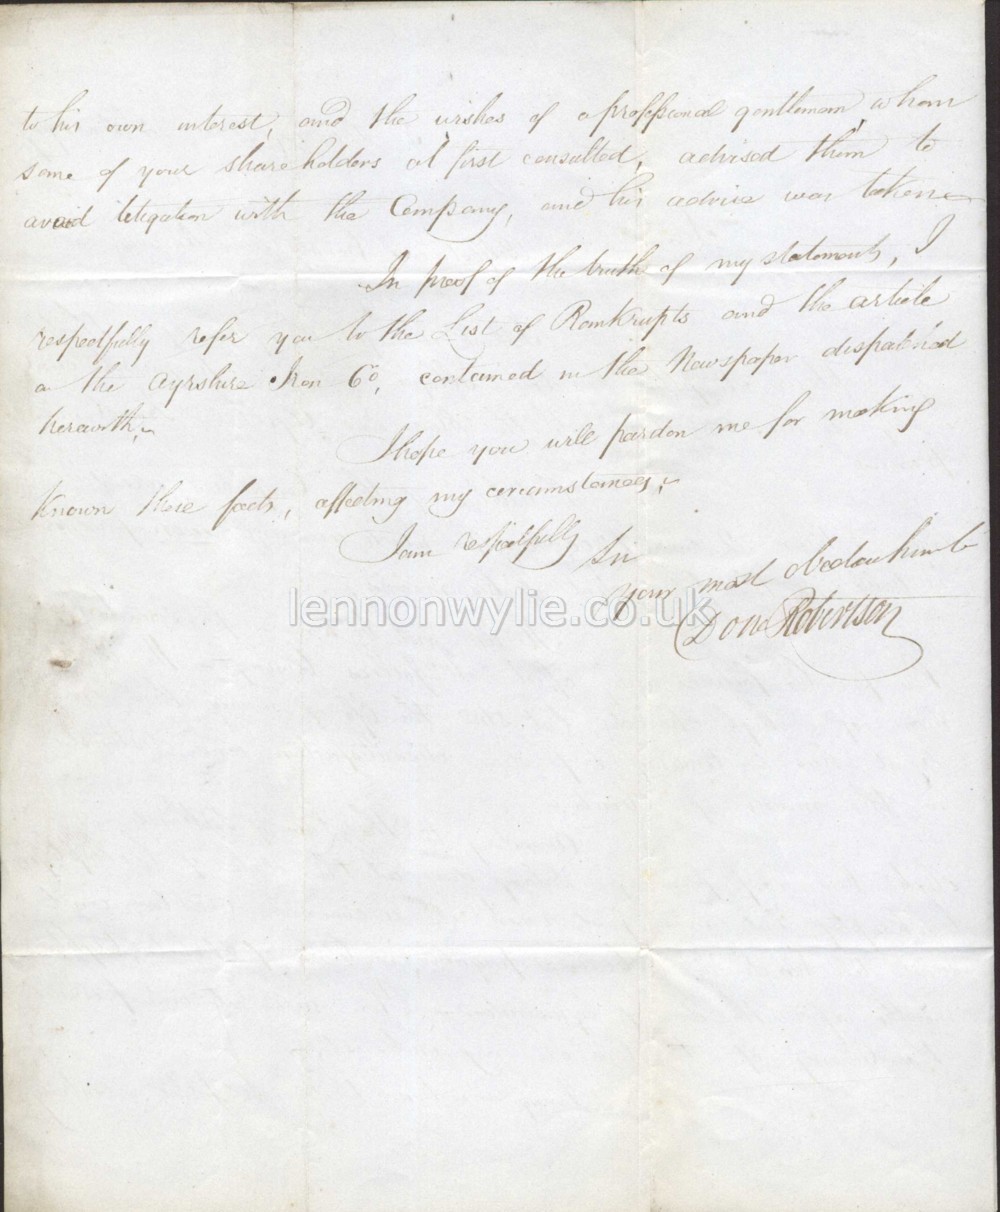 to his own interest, and the wishes of a professional gentleman whom
some of your shareholders at first consulted, advised them to
avoid litigation with the Company, and his advice was taken
In proof of the truth of my statements, I
respectfully refer you to the List of Bankrupts and the article
on the Ayrshire Iron Co, contained in the Newspaper dispatched
herewith,
I hope you will pardon me for making
known these facts, affecting my circumstances,
I am respectfully Sir
your most obedient
Robertson
lennonwylie.co.uk